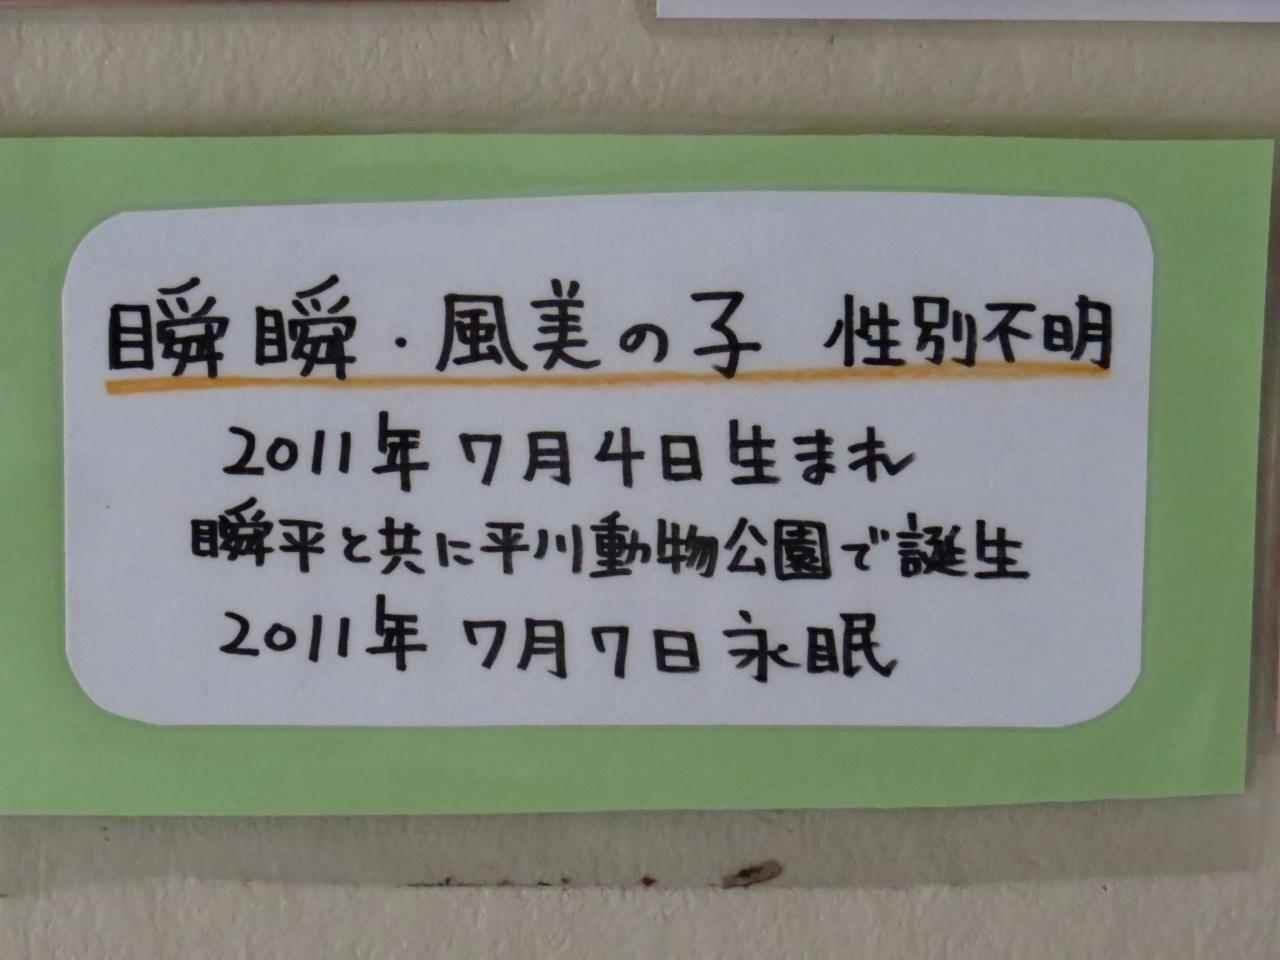 瞬瞬・風美の子 性別不明
2011年 7月4日生まれ
瞬平と共に平川動物公園で誕生
2011年 7月7日永眠